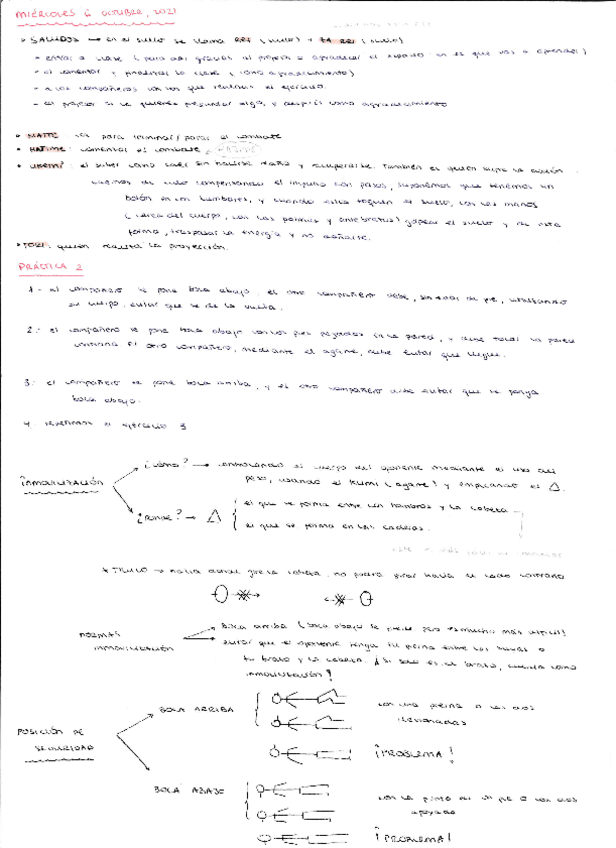 MIÉRCOLES 6 OCTUBRE, 2021
• SALUDOS → en el suelo se llama
- entrar a clase (para dar gracias al
- al comentar y presentar la clase (como agradecimiento)
- a los compañeros con los que realices el ejercicio.
- al profesor si le quieres preguntar algo, y después como agradecimiento
• MATTE: es para terminar/parar el combate
• HAJIME: comenzar el combate
• UKEMI: el saber como caer sin hacerse daño y recuperarse. También es quien sufre la acción.
compensando el impulso con peso, suponemos que tenemos un
botón en los lumbares, y cuando estos toquen el suelo, con las manos
(cerca del cuerpo, con las palmas y antebrazos) golpear el suelo y de esta
forma, traspasar la energía y no dañarte.
• TORI: quien realiza la proyección.
PRÁCTICA 2
1.- el compañero se pone boca abajo, el otro compañero debe, sin estar de pie, utilizando
su cuerpo, evitar que se dé la vuelta.
2.- el compañero se pone boca abajo con los pies pegados en la pared, y debe tocar la pared
contraria. El otro compañero, mediante el agarre, debe evitar que llegue.
3.- el compañero se pone boca arriba, y el otro compañero debe evitar que se ponga
boca abajo.
4. repetimos el ejercicio 3
INMOVILIZACIÓN
¿Cómo? → controlando el cuerpo del oponente mediante el uso del
peso, usando el Kumi (agarre) y empleando el △.
¿Dónde? → △
el que se forma entre los hombros y la cabeza
el que se forma en las caderas.
* TRUCO → hacia donde gire la cabeza, no podrá girar hacia el lado contrario
NORMAS INMOVILIZACIÓN
Boca arriba (boca abajo se puede pero es mucho más difícil)
evitar que el oponente tenga tu pierna entre las suyas o
tu brazo y la cabeza. ¡Si solo es el brazo, cuenta como
inmovilización!
POSICIÓN DE SEGURIDAD
BOCA ARRIBA
con una pierna o las dos
flexionadas
¡PROBLEMA!
BOCA ABAJO
con la punta de un pie o los dos
apoyada
¡PROBLEMA!